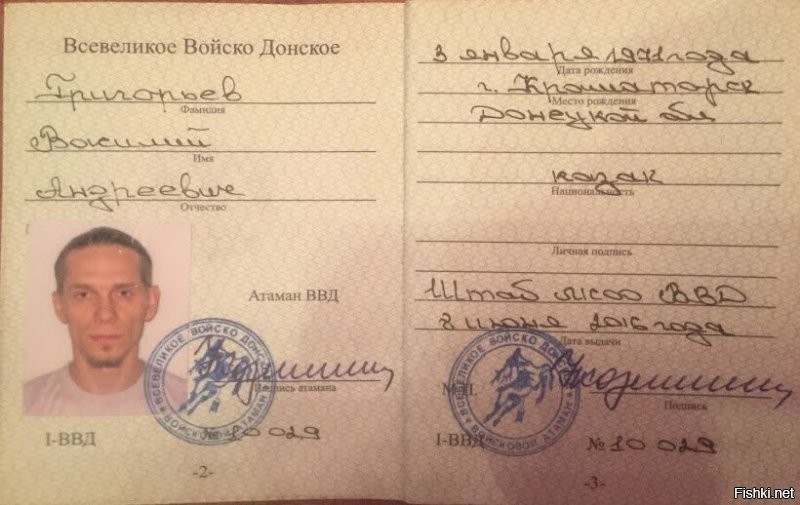 Всевеликое Войско Донское
Григорьев
Фамилия
Василий
Имя
Андреевич
Отчество
Атаман ВВД
Подпись атамана
ВСЕВЕЛИКОЕ ВОЙСКО ДОНСКОЕ
ВОЙСКОВОЙ АТАМАН
I-ВВД № 10029
-2-
3 января 1971 года
Дата рождения
г. Краматорск
Место рождения
Донецкой обл
казак
Национальность
Личная подпись
Штаб ВВД
8 июня 2016 года
Дата выдачи
М.П.
Подпись
ВСЕВЕЛИКОЕ ВОЙСКО ДОНСКОЕ
ВОЙСКОВОЙ АТАМАН
I-ВВД № 10029
-3-
Fishki.net